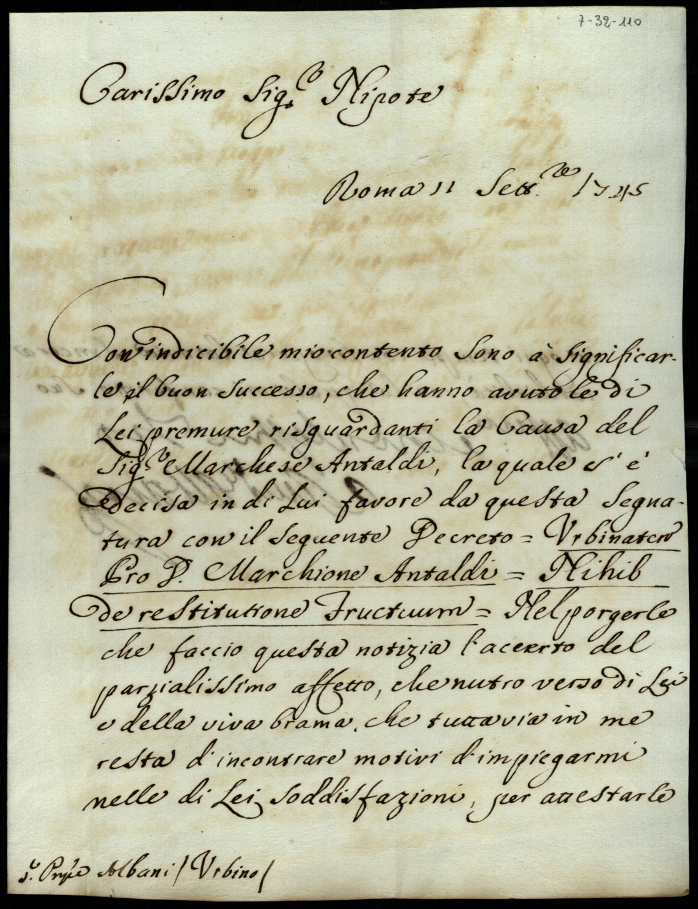 7-32-110
Carissimo Sig.r Nipote
Roma 11 Sett.re 1745
Con indicibile mio contento sono à significar-
le il buon successo, che hanno avuto le di
Lei premure risguardanti la Causa del
Sig.r Marchese Antaldi, la quale s'è
decisa in di Lui favore da questa Segna-
tura con il seguente Decreto = Urbinaten
Pro D. Marchione Antaldi = Nihil
de restitutione Fructuum = Nel porgerle
che faccio questa notizia l'accerto del
parzialissimo affetto, che nutro verso di Lei
e della viva brama, che tuttavia in me
resta d'incontrare motivi d'impiegarmi
nelle di Lei soddisfazioni, per attestarle
Albani / Urbino /